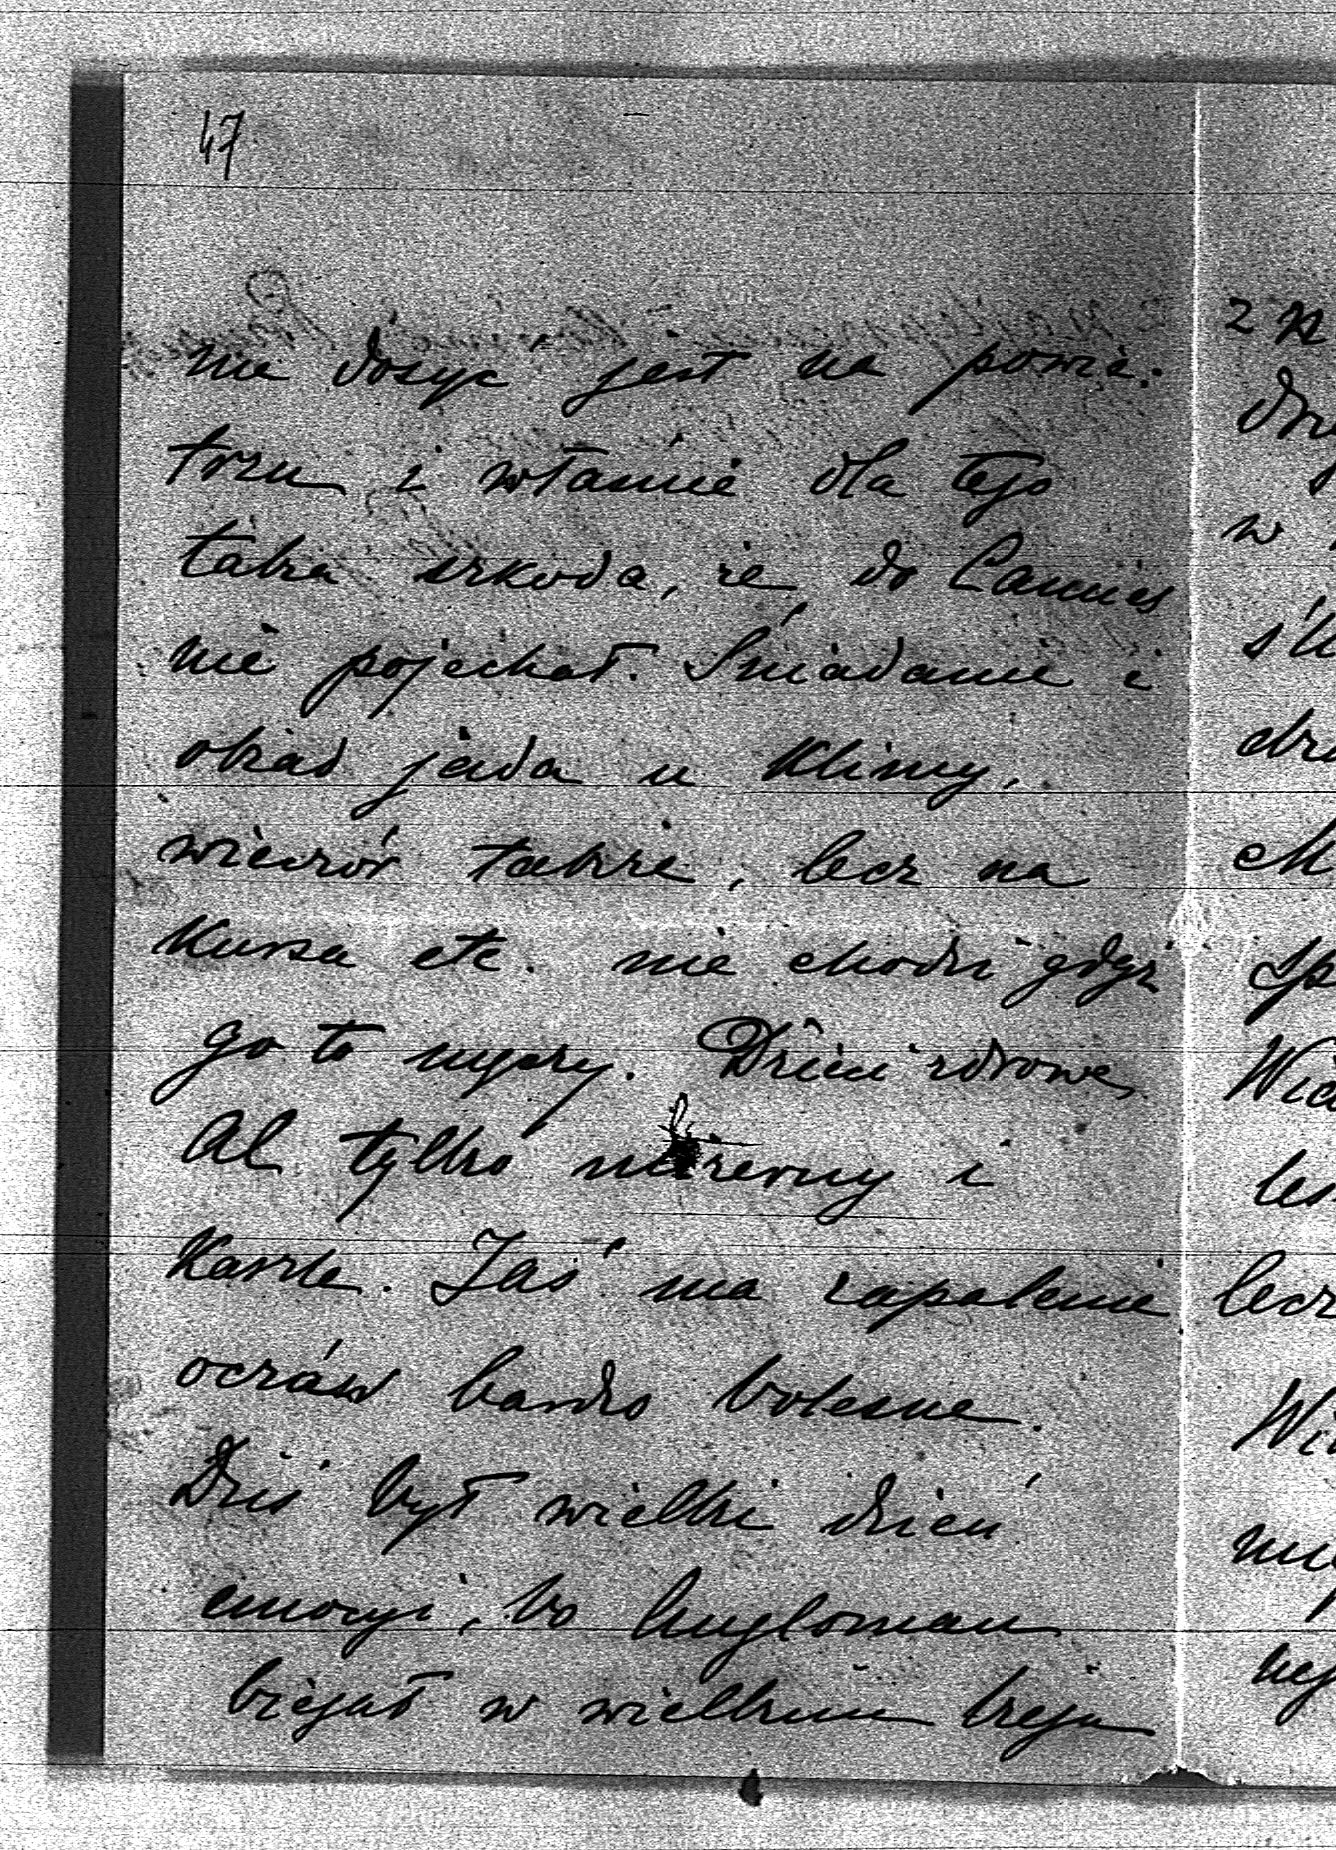 47
nie dosyć jest na powie-
trzu i właśnie dla tego
także szkoda, że do Cannes
nie pojechał. Śniadanie i
obiad jada u Klimy,
wieczór także, lecz na
Kursa etc. nie chodzi gdyż
go to męczy. Dzieci zdrowe,
Al tylko mizerny i
Kaszle. Jaś ma zapalenie
oczów bardzo bolesne.
Dziś był wielki dzień
emocyi, bo Angloman
biegał w wielkim biegu